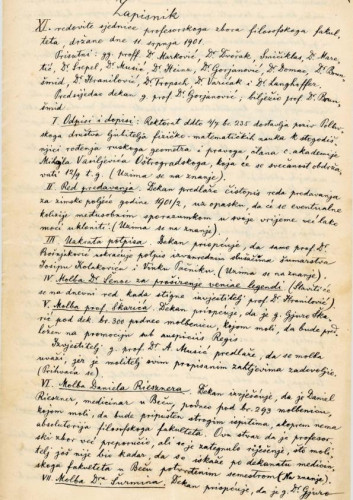 Zapisnik
XI. redovite sjednice profesorskoga zbora filosofskoga fakul-
teta, držane dne 11. srpnja 1901.
Prisutni: gg. proff. Dr. Marković, Dr. Dvořak, Smičiklas, Dr. Mare-
tić, Dr. Šrepel, Dr. Musić, Dr. Heinz, Dr. Gorjanović, Dr. Domac, Dr. Brun-
šmid, Dr. Hranilović, Dr. Tropsch, Dr. Varićak i Dr. Langhoffer.
Predsjedao dekan g. prof. Dr. Gorjanović, bilježio prof. Dr. Brun-
šmid.
I. Odpisi i dopisi: Rektorat ddto 4/7 br. 235 dostavlja poziv
društva ljubitelja fizičko-matematičkih nauka k stogodiš-
njici rođenja ruskoga geometra i pravoga člana c. akademije
Mihajla Vasiljevića Ostrogradskoga, koja će se svečanost obdrža-
vati 12/9 t. g. (Uzima se na znanje).
II. Red predavanja. Dekan predlaže čistopis reda predavanja
za zimsko poljeće godine 1901/2, uz opasku, da će se eventualne
kolizije međusobnim sporazumkom u svoje vrijeme već lako
moći ukloniti. (Uzima se na znanje).
III. Uskrata potpisa. Dekan priopćuje, da samo prof. Dr.
Bošnjaković uskraćuje potpis izvanrednim slušačima šumarstva
Josipu Kolakoviću i Vinku Pačniku. (Uzima se na znanje).
IV. Molba Dr. Senoe za proširenje veniae legendi (Staviti će
se na dnevni red, kada stigne izvjestitelj prof. Dr. Hranilović)
V. Molba prof. Škarića. Dekan priopćuje, da je g. Gjuro Ška-
rić pod dek. br. 300 podneo molbenicu, kojom moli, da bude pred-
ložen na promociju sub auspiciis Regis
Izvjestitelj g. prof. Dr. A. Musić predlaže, da se molba
uvaži, jer je molitelj svim propisanim zahtjevima zadovoljio.
(Prihvaća se)
VI. Molba Daniela Riesznera. Dekan izvješćuje, da je Daniel
Rieszner, medicinar u Beču, podneo pod br. 293 molbenicu,
kojom moli, da bude pripušten strogim ispitima, doprem nema
absolutorija filosofskoga fakulteta. Ovu stvar da je profesor-
ski zbor već preporučio, ali se je zategnulo riješenje, što moli-
telj još nije bio kadar, da se iskaže po dekanatu medicin-
skoga fakulteta u Beču potvrđenim semestrom (Na znanje).
VII. Molba Dra Šurmina. Dekan priopćuje, da je g. Dr. Gjuro